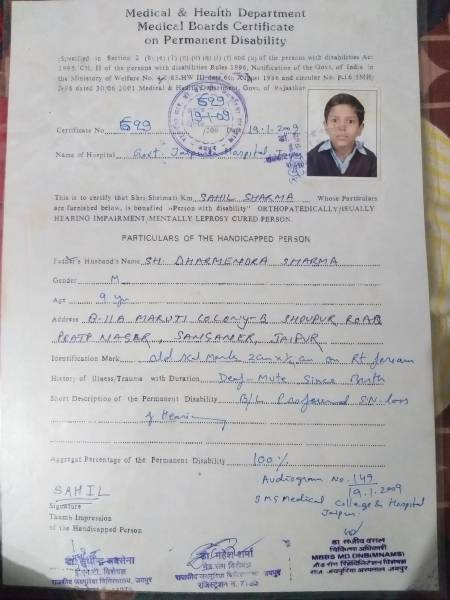 Medical & Health Department
Medical Boards Certificate
on Permanent Disability
Specified in Section 2 of the persons with disabilities Act
1995, CH. II of the persons with disabilities Rules 1996, Notification of the Govt. of India
in the Ministory of Welfare No. 1986 and circular No.
30/06/2001 Medical & Heating Department, Govt. of Rajasthan
699
19-1-09
Certificate No. 699 /200 Date 19.1.2009
Name of Hospital Govt. Hospital,
This is to certify that Shri/Shrimati/Km SAHIL SHARMA Whose Particulars
are furnished below, is bonafied «Person with disability" ORTHOPATEDICALLY/
HEARING IMPAIRMENT/MENTALLY LEPROSY CURED PERSON.
PARTICULARS OF THE HANDICAPPED PERSON
Father's Husband's Name SH. DHARMENDRA SHARMA
Gender M
Age 9 yr
Address B-11A MARUTI COLONY-B SHOUPUR ROAD
PRATP NAGER, SANGANER, JAIPUR
Identification Mark old scl mark on Rt forearm
History of Illness/Trauma with Duration Deaf-Mute Since Birth
Short Description of the Permanent Disability B/L Profound S.N. loss
of Hearing
Aggregat Percentage of the Permanent Disability 100%
Audiogram No. 149
19.1.2009
SMS Medical College & Hospital
Jaipur
SAHIL
Signature
Thumb Impression
of the Handicapped Person
डा. महेश शर्मा
रजिस्ट्रेशन नं.
डा संजीव
चिकित्सा अधिकारी
MBBS MD DNB(MNAMS)